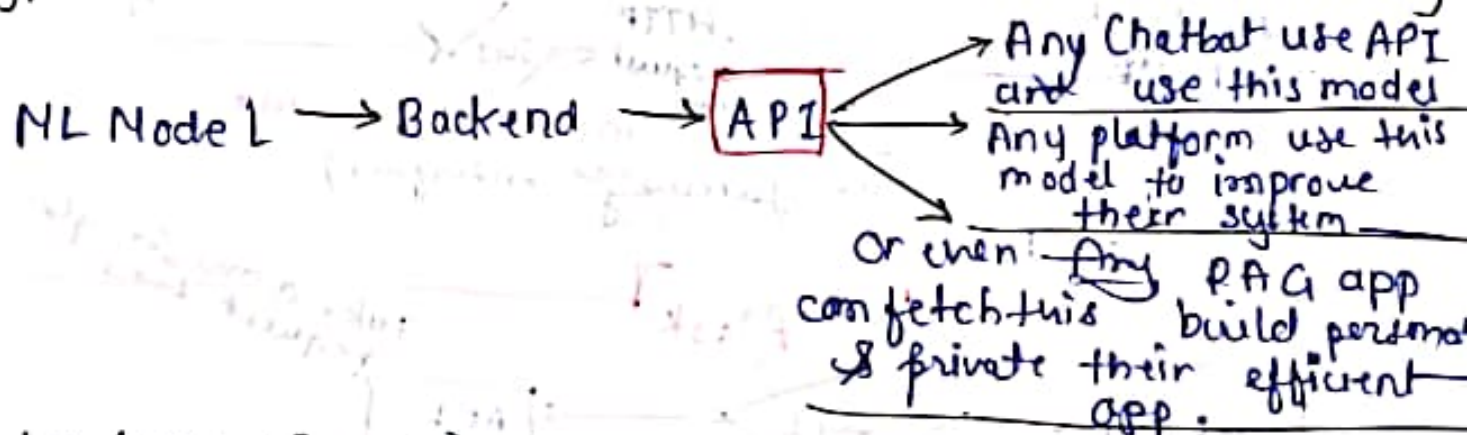 NL Model → Backend → API
→ Any Chatbat use API
and use this model
→ Any platform use this
model to improve
their system
Or even Any RAG app
can fetch this build personal
& private their efficient
app.